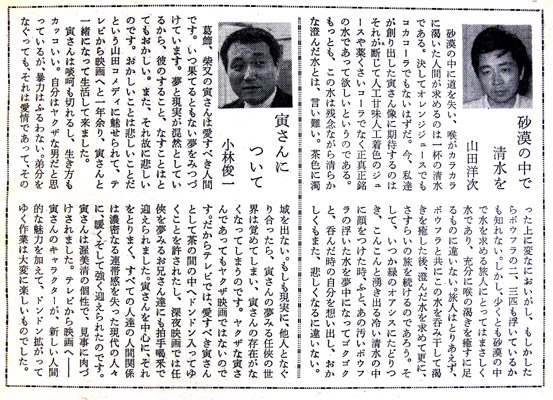 砂漠の中で
清水を
山田洋次
砂漠の中に道を失い、喉がカラカラ
に渇いた人間が求めるのは一杯の清水
である。決してオレンジジュースでも
コカコーラでもないはずだ。今、私達
が創り出した寅さん像に期待するのは
それが断じて人工甘味人工着色のジュ
ースや薬くさいコーラでなく正真正銘
の水であって欲しいというのである。
もっとも、この水は残念ながら清らか
な澄んだ水とは、言い難い。茶色に濁
った上に変なにおいがし、もしかした
らボウフラの二、三匹も浮いているか
も知れない。しかし、少くとも砂漠の中
で水を求める旅人にとってはまさしく
水であり、充分に喉の渇きを癒すに足
るものに違いない。旅人はとりあえず、
ボウフラと共にこの水を呑み干して渇
きを癒した後、澄んだ水を求めて更に、
さすらいの旅を続けるのであろう。そ
して、いつか緑のオアシスにたどりつ
き、こんこんと湧き出る冷い清水の中
に顔をつけた時、ふと、あの汚いボウフ
ラの浮いた水を夢中になってゴクゴク
と、呑んだ時の自分を想い出し、おか
しくもまた、悲しくなるに違いない。
寅さんに
ついて
小林俊一
葛飾、柴又の寅さんは愛すべき人間
です。いつ果てるともない夢をみつづ
けています。夢と現実が混然としてい
るから、彼のすること、なすことはと
てもおかしい。また、それ故に悲しい
のです。おかしいことは悲しいことだ
という山田コメディに魅せられて、テ
レビから映画へと一年余り、寅さんと
一緒になって生活して来ました。
寅さんは啖呵も切れるし、生き方も
カッコいい。自分はヤクザな男だと思
っているが、暴力はふるわない。弟分を
なぐっても、それは愛情であって、その
域を出ない。もしも現実に、他人となぐ
り合ったら、寅さんの夢みる任侠の世
界は覚めてしまい、寅さんの存在がな
くなってしまうのです。ヤクザな寅さ
んであってもヤクザ映画ではないので
す。だからテレビでは、愛すべき寅さん
として茶の間の中へドンドン入ってゆ
くことを許されたし、深夜映画では任
侠を夢みるお兄さん達にも拍手喝采で
迎えられました。寅さんを中心に、それ
をとりまく、すべての人達の人間関係
は濃密なる連帯感を失った現代の人々
に、暖くそして強く迎えられたのです。
寅さんは渥美清の個性で、見事に肉づ
けされました。テレビから映画へ――
寅さんのキャラクターが、新しい人間
的な魅力を加えて、ドンドン拡がって
ゆく作業は大変に楽しいものでした。